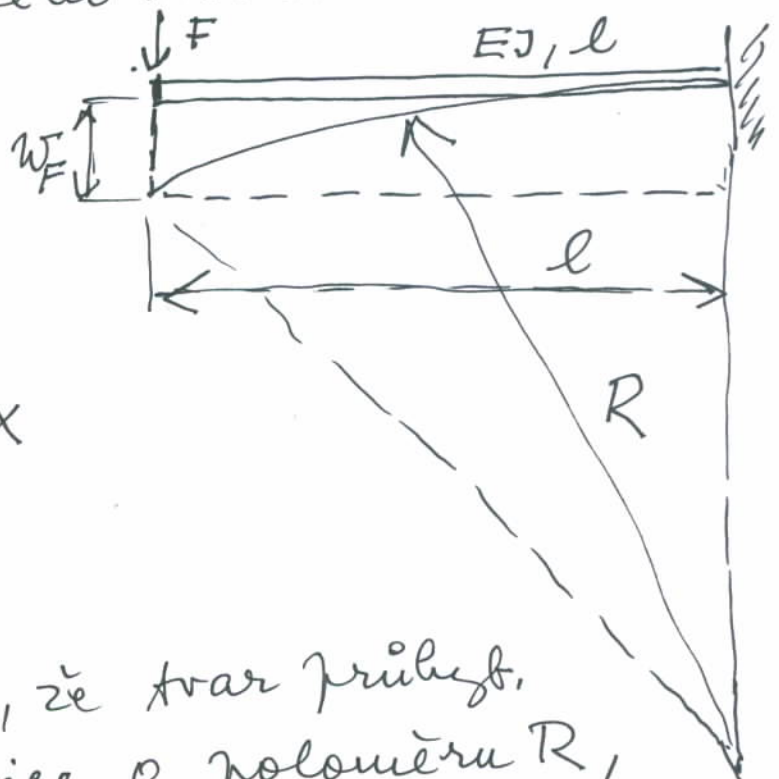 F
EJ, l
w_F
l
R
x
, že tvar průhyb.
o poloměru R,